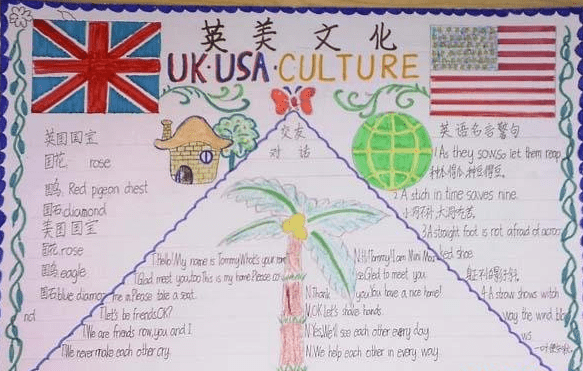 英美文化
UK·USA·CULTURE
英国国宝
国花 rose
国鸟 Red pigeon chest
国石 diamond
美国国宝
国花 rose
国鸟 eagle
国石 blue diamond
交友
对话
T.Hello! My name is Tommy. What's your name
T.Glad meet you, too. This is my home. Please co
me in. Please take a seat.
T.Let's be friends, OK?
T.We are friends now, you and I
T.We never make each other cry.
N.Hi! Tommy. I am Mini
Glad to meet you.
N.Thank you. You have a nice home!
N.OK. Let's shake hands.
N.Yes. We'll see each other every day.
N.We help each other in every way.
英语名言警句
1 As they sow, so let them reap
2 A stich in time saves nine.
3 A straight foot is not afraid of a croo
ked shoe.
4 A straw shows witch
way the wind blo
ws